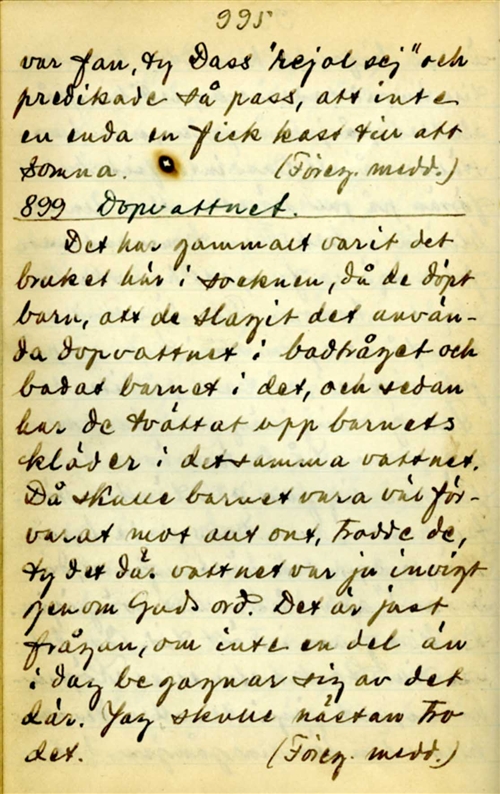 995
var fan, ty Dass "rejol sej" och
predikade så pass, att inte
en enda en fick hast till att
somna. (Föreg. medd.)
899 Dopvattnet.
Det har gammalt varit det
bruket här i socknen, då de döpt
barn, att de slagit det använ-
da dopvattnet i badtråget och
badat barnet i det, och sedan
har de tvättat upp barnets
kläder i detsamma vattnet.
Då skulle barnet vara väl för-
varat mot allt ont, trodde de,
ty det där vattnet var ju invigt
genom Guds ord. Det är just
frågan, om inte en del än
i dag begagnar sig av det
där. Jag skulle nästan tro
det. (Föreg. medd.)